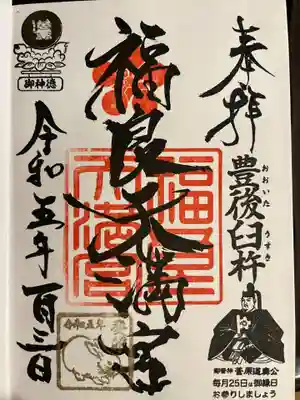 奉拝
豊後臼杵
おおいた うすき
御祭神 菅原道真公
毎月25日は御縁日
お参りしましょう
福良天満宮
福良天満宮
御神徳
令和五年一月三日
令和五年